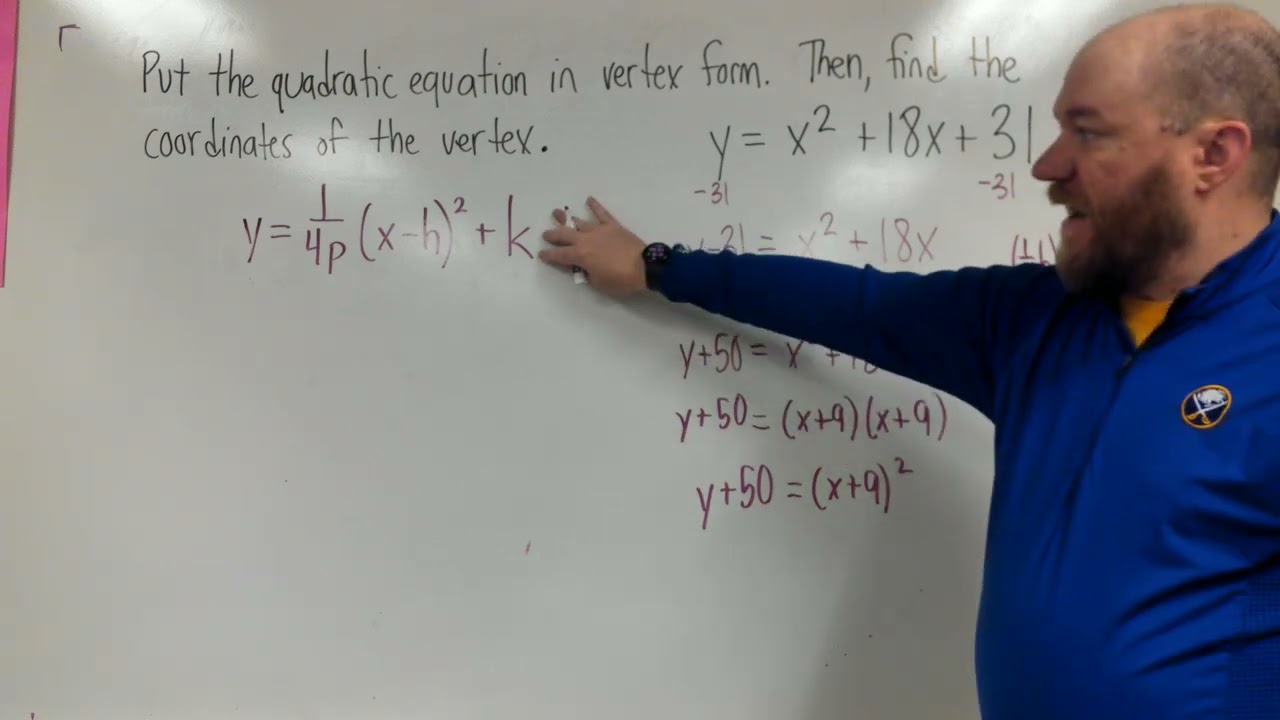 Put the quadratic equation in vertex form. Then, find the
coordinates of the vertex.
y = x² + 18x + 31
-31 -31
y = 1/4p (x-h)² + k
= x² + 18x
y+50 = x
y+50 = (x+9)(x+9)
y+50 = (x+9)²